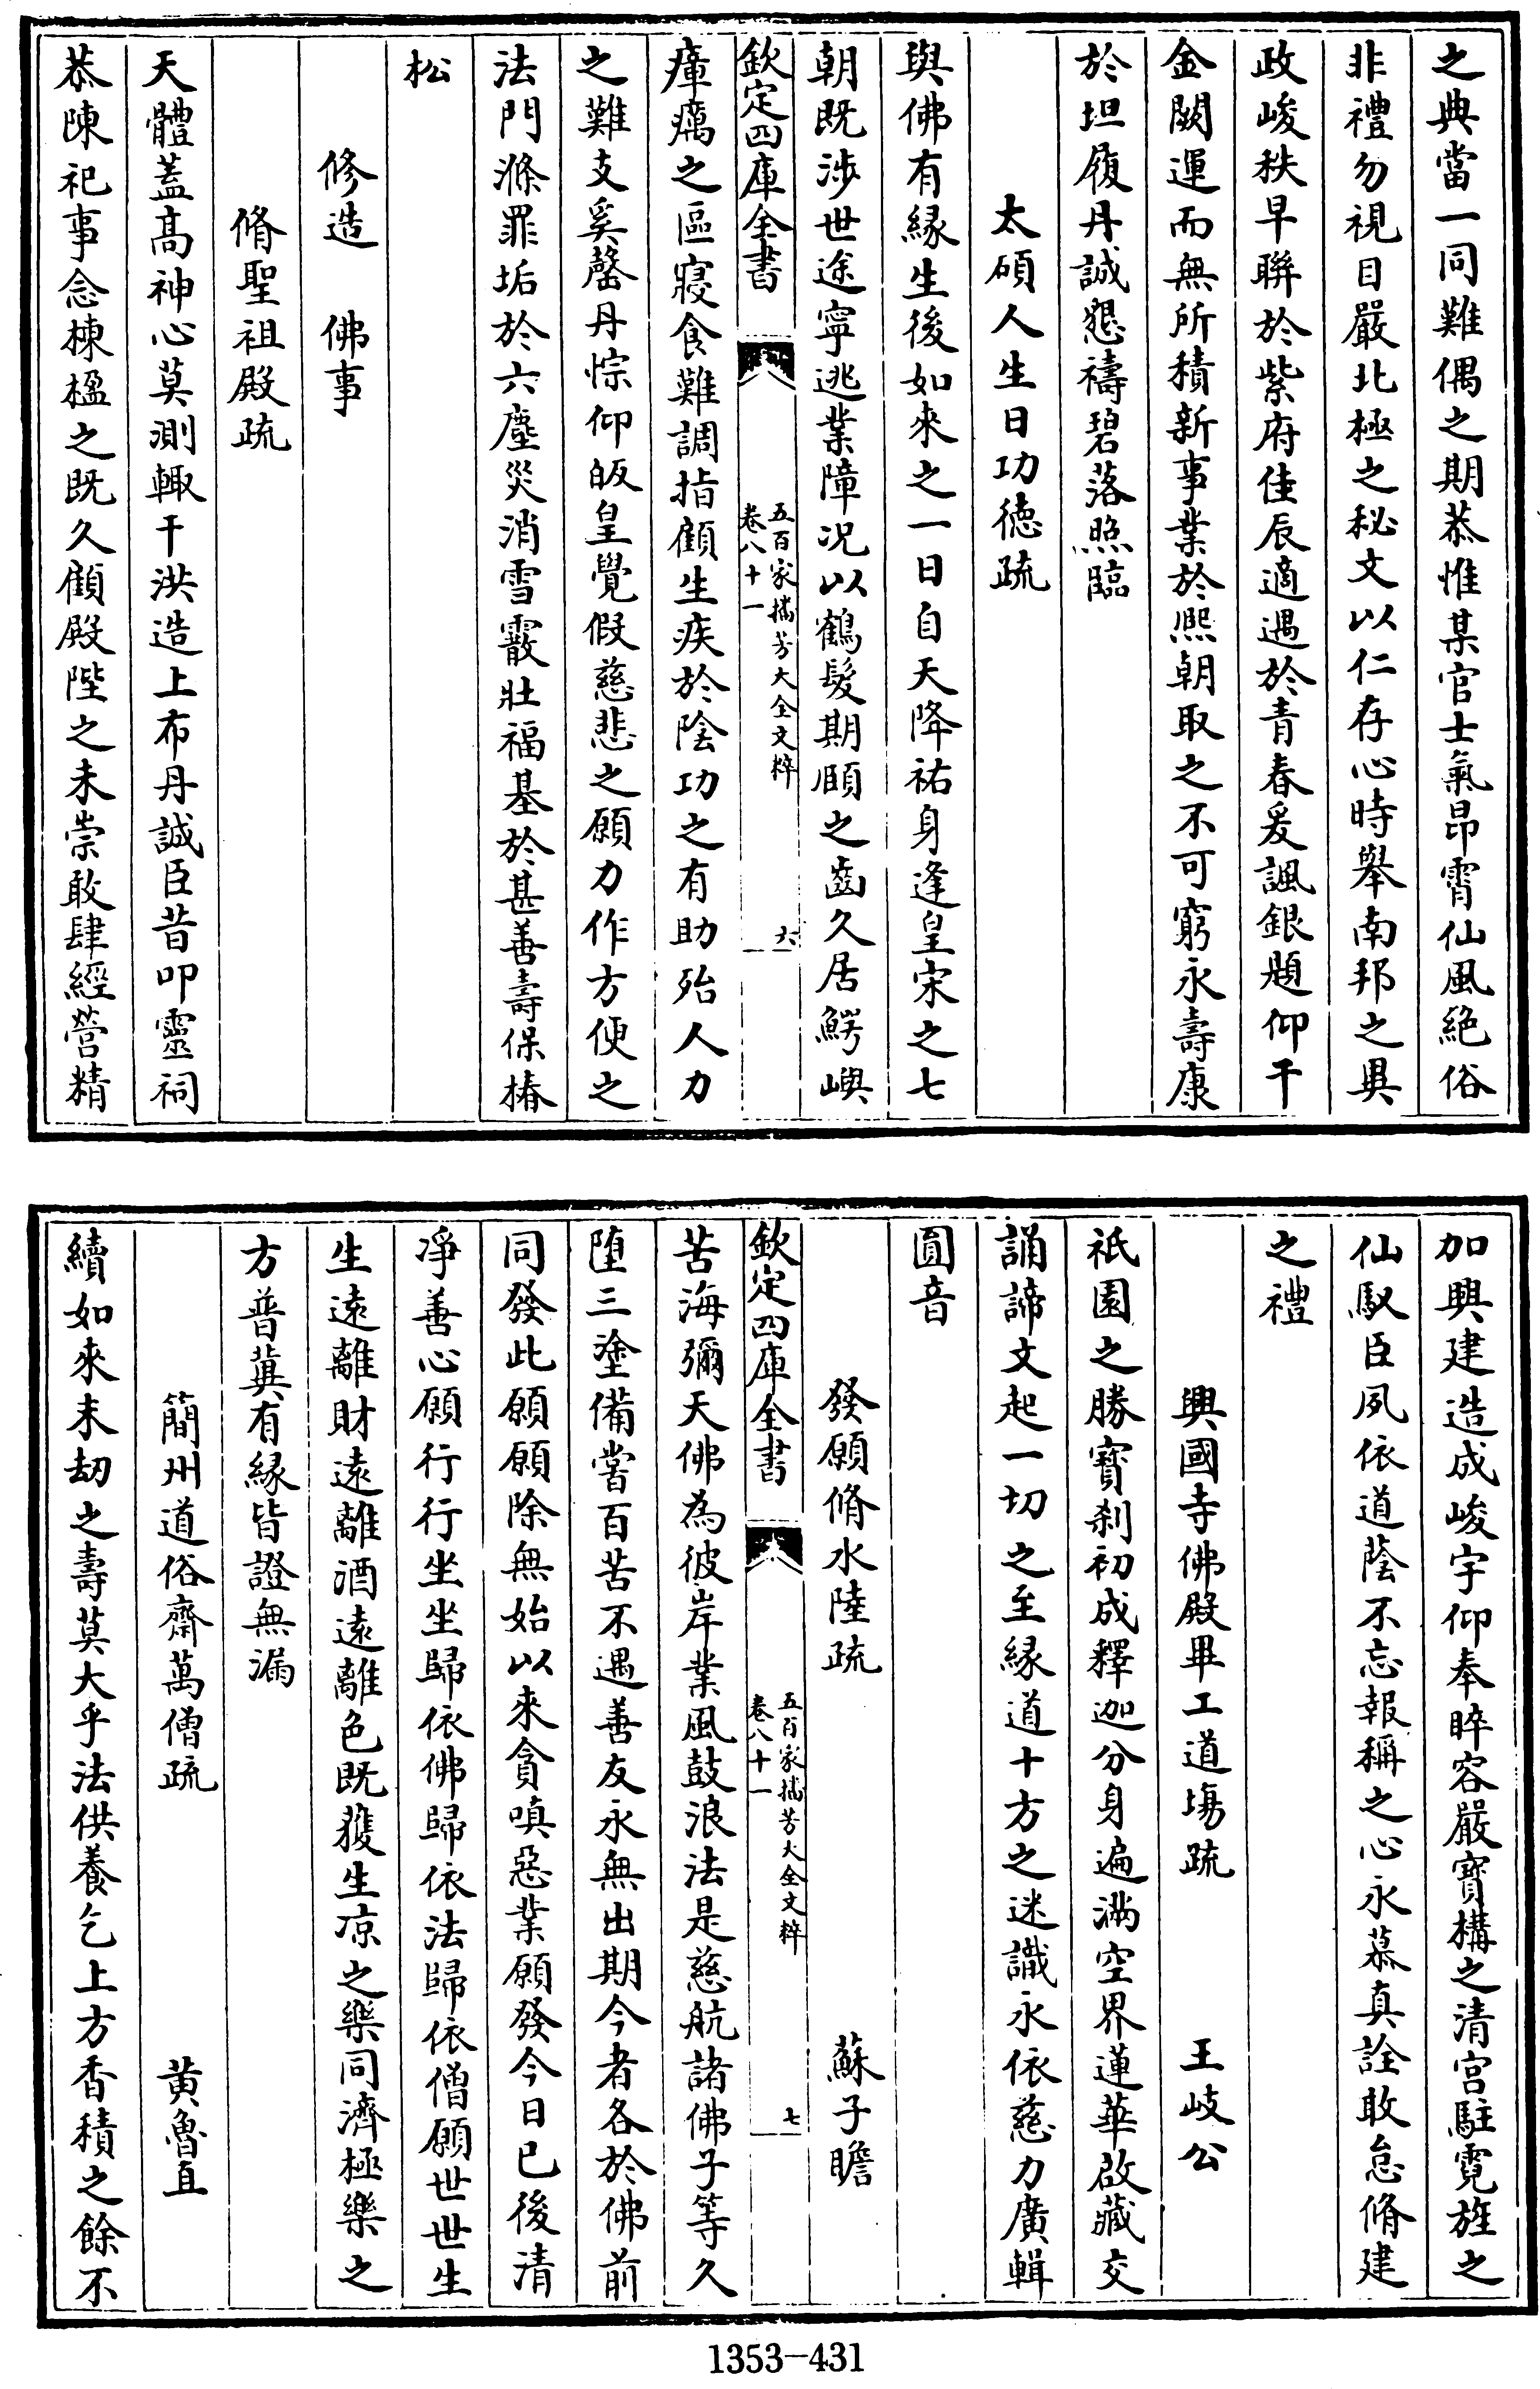 之典當一同難偶之期恭惟某官士氣昂霄仙風絶俗
非禮勿視目嚴北極之秘文以仁存心時舉南邦之異
政峻秩早聯於紫府佳辰適遇於青春爰諷銀題仰干
金闕運而無所積新事業於熙朝取之不可窮永壽康
於坦履丹誠懇禱碧落照臨
太碩人生日功德疏
與佛有緣生後如來之一日自天降祐身逢皇宋之七
朝既涉世途寧逃業障况以鶴髮期頤之齒久居鰐嶼
欽定四庫全書
五百家播芳大全文粹
卷八十一
六
瘴癘之區寢食難調指顧生疾於陰功之有助殆人力
之難支奚罄丹悰仰皈皇覺假慈悲之願力作方便之
法門滌罪垢於六塵災消雪霰壯福基於甚善壽保椿
松
修造 佛事
脩聖祖殿疏
天體蓋高神心莫測輙干洪造上布丹誠臣昔叩靈祠
恭陳祀事念棟楹之既久顧殿陛之未崇敢肆經營精
加興建造成峻宇仰奉睟容嚴寳構之清宫駐霓旌之
仙馭臣夙依道蔭不忘報稱之心永慕真詮敢怠脩建
之禮
興國寺佛殿畢工道塲疏 王岐公
祇園之勝寳刹初成釋迦分身遍滿空界蓮華啟藏交
誦諦文起一切之至緣道十方之迷識永依慈力廣輯
圓音
發願脩水陸疏 蘇子瞻
欽定四庫全書
五百家播芳大全文粹
卷八十一
七
苦海彌天佛為彼岸業風鼓浪法是慈航諸佛子等久
墮三塗備嘗百苦不遇善友永無出期今者各於佛前
同發此願願除無始以來貪嗔惡業願發今日已後清
淨善心願行行坐坐歸依佛歸依法歸依僧願世世生
生遠離財遠離酒遠離色既獲生凉之樂同濟極樂之
方普冀有緣皆證無漏
簡州道俗齋萬僧疏 黄魯直
續如來末劫之壽莫大乎法供養乞上方香積之餘不
1353-431